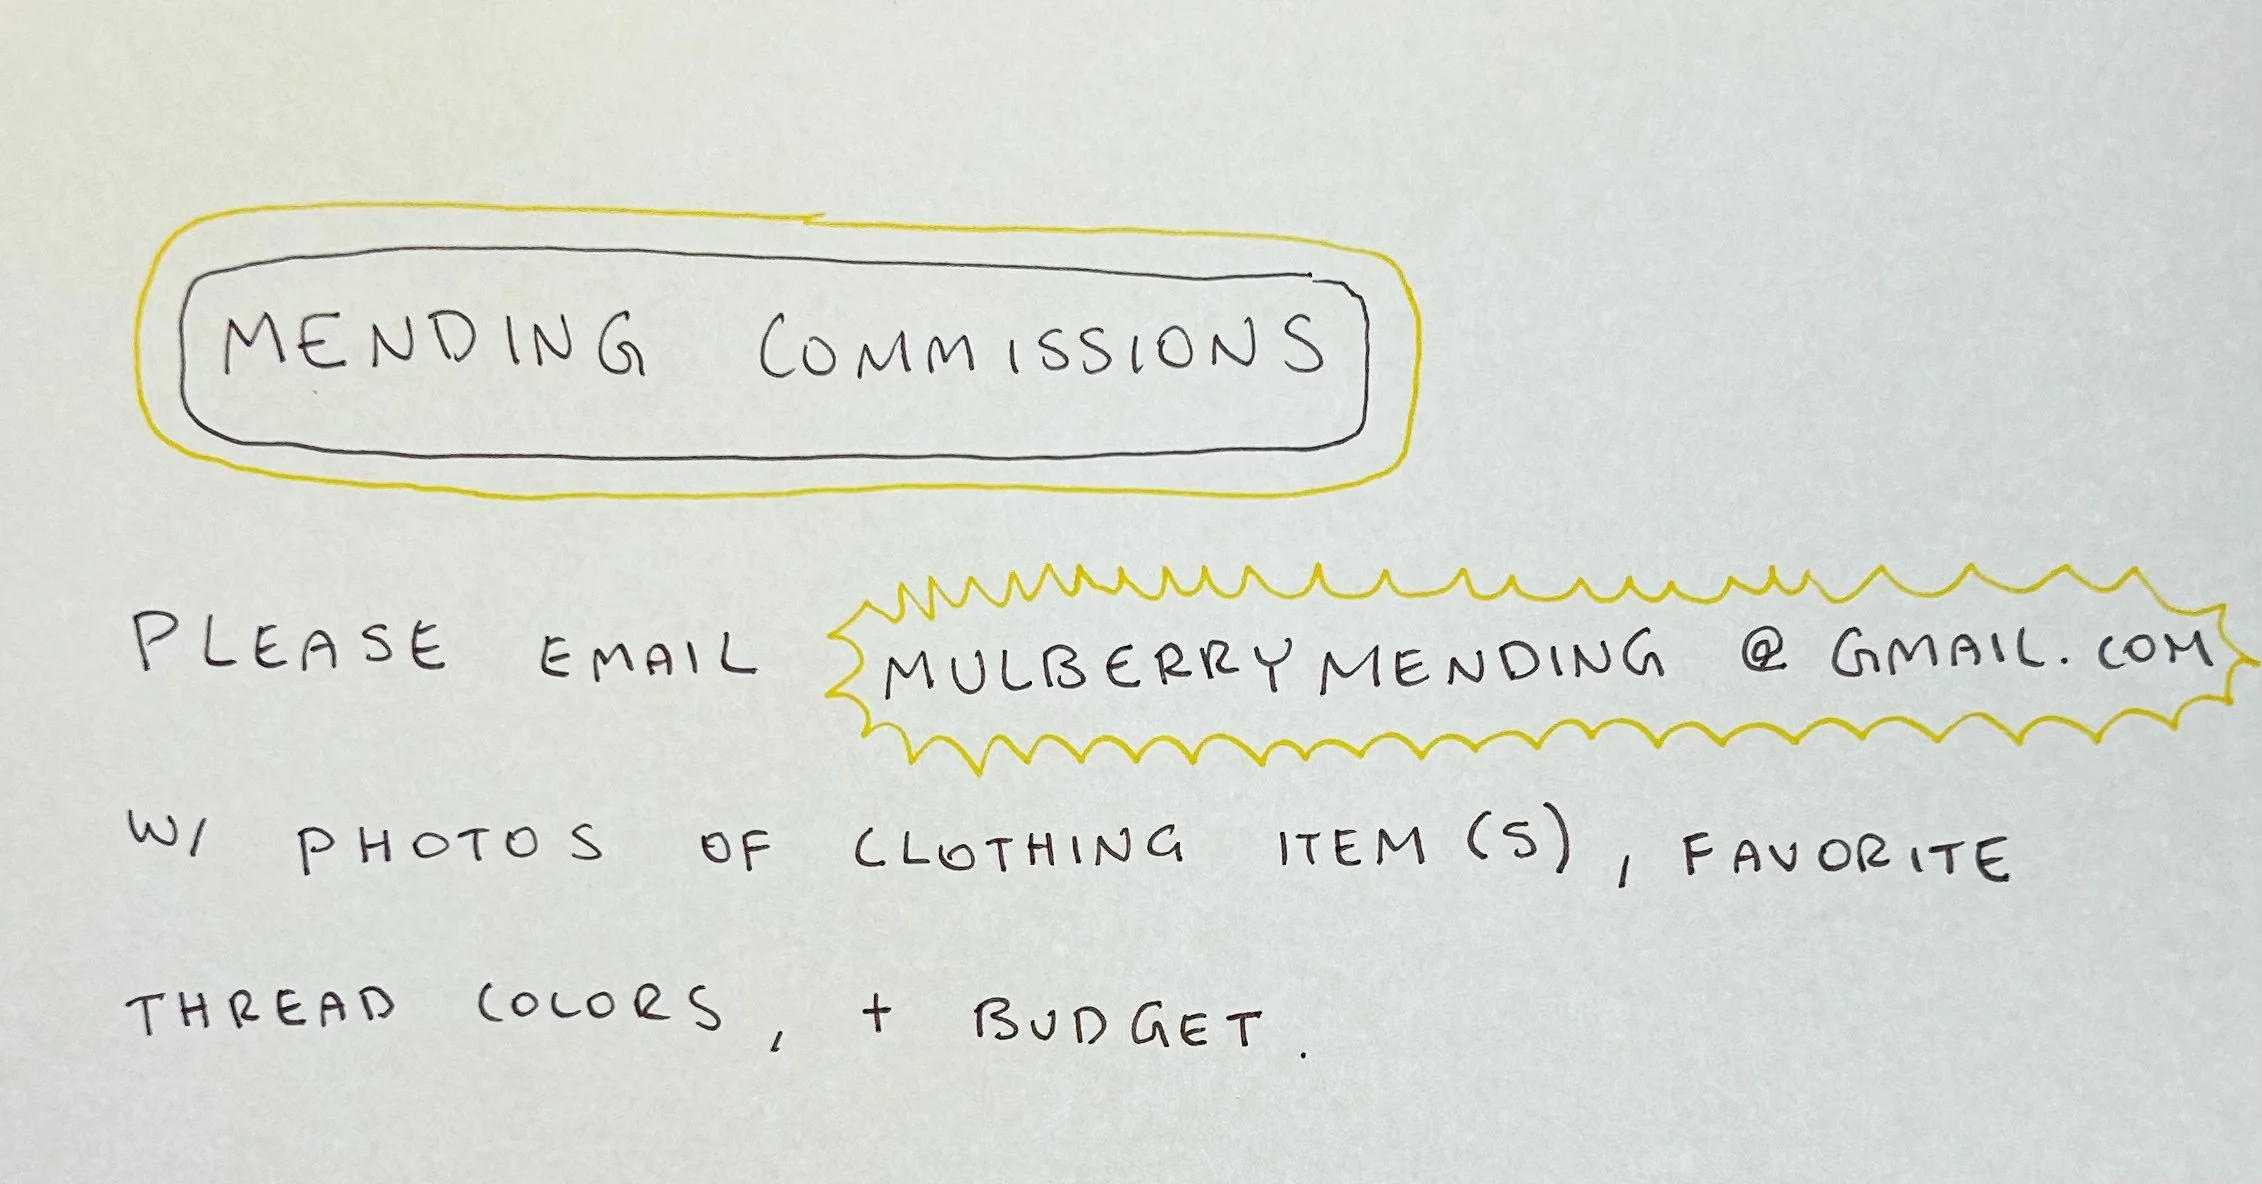 MENDING COMMISSIONS
PLEASE EMAIL MULBERRYMENDING @ GMAIL.COM
W/ PHOTOS OF CLOTHING ITEM(S), FAVORITE
THREAD COLORS, + BUDGET.